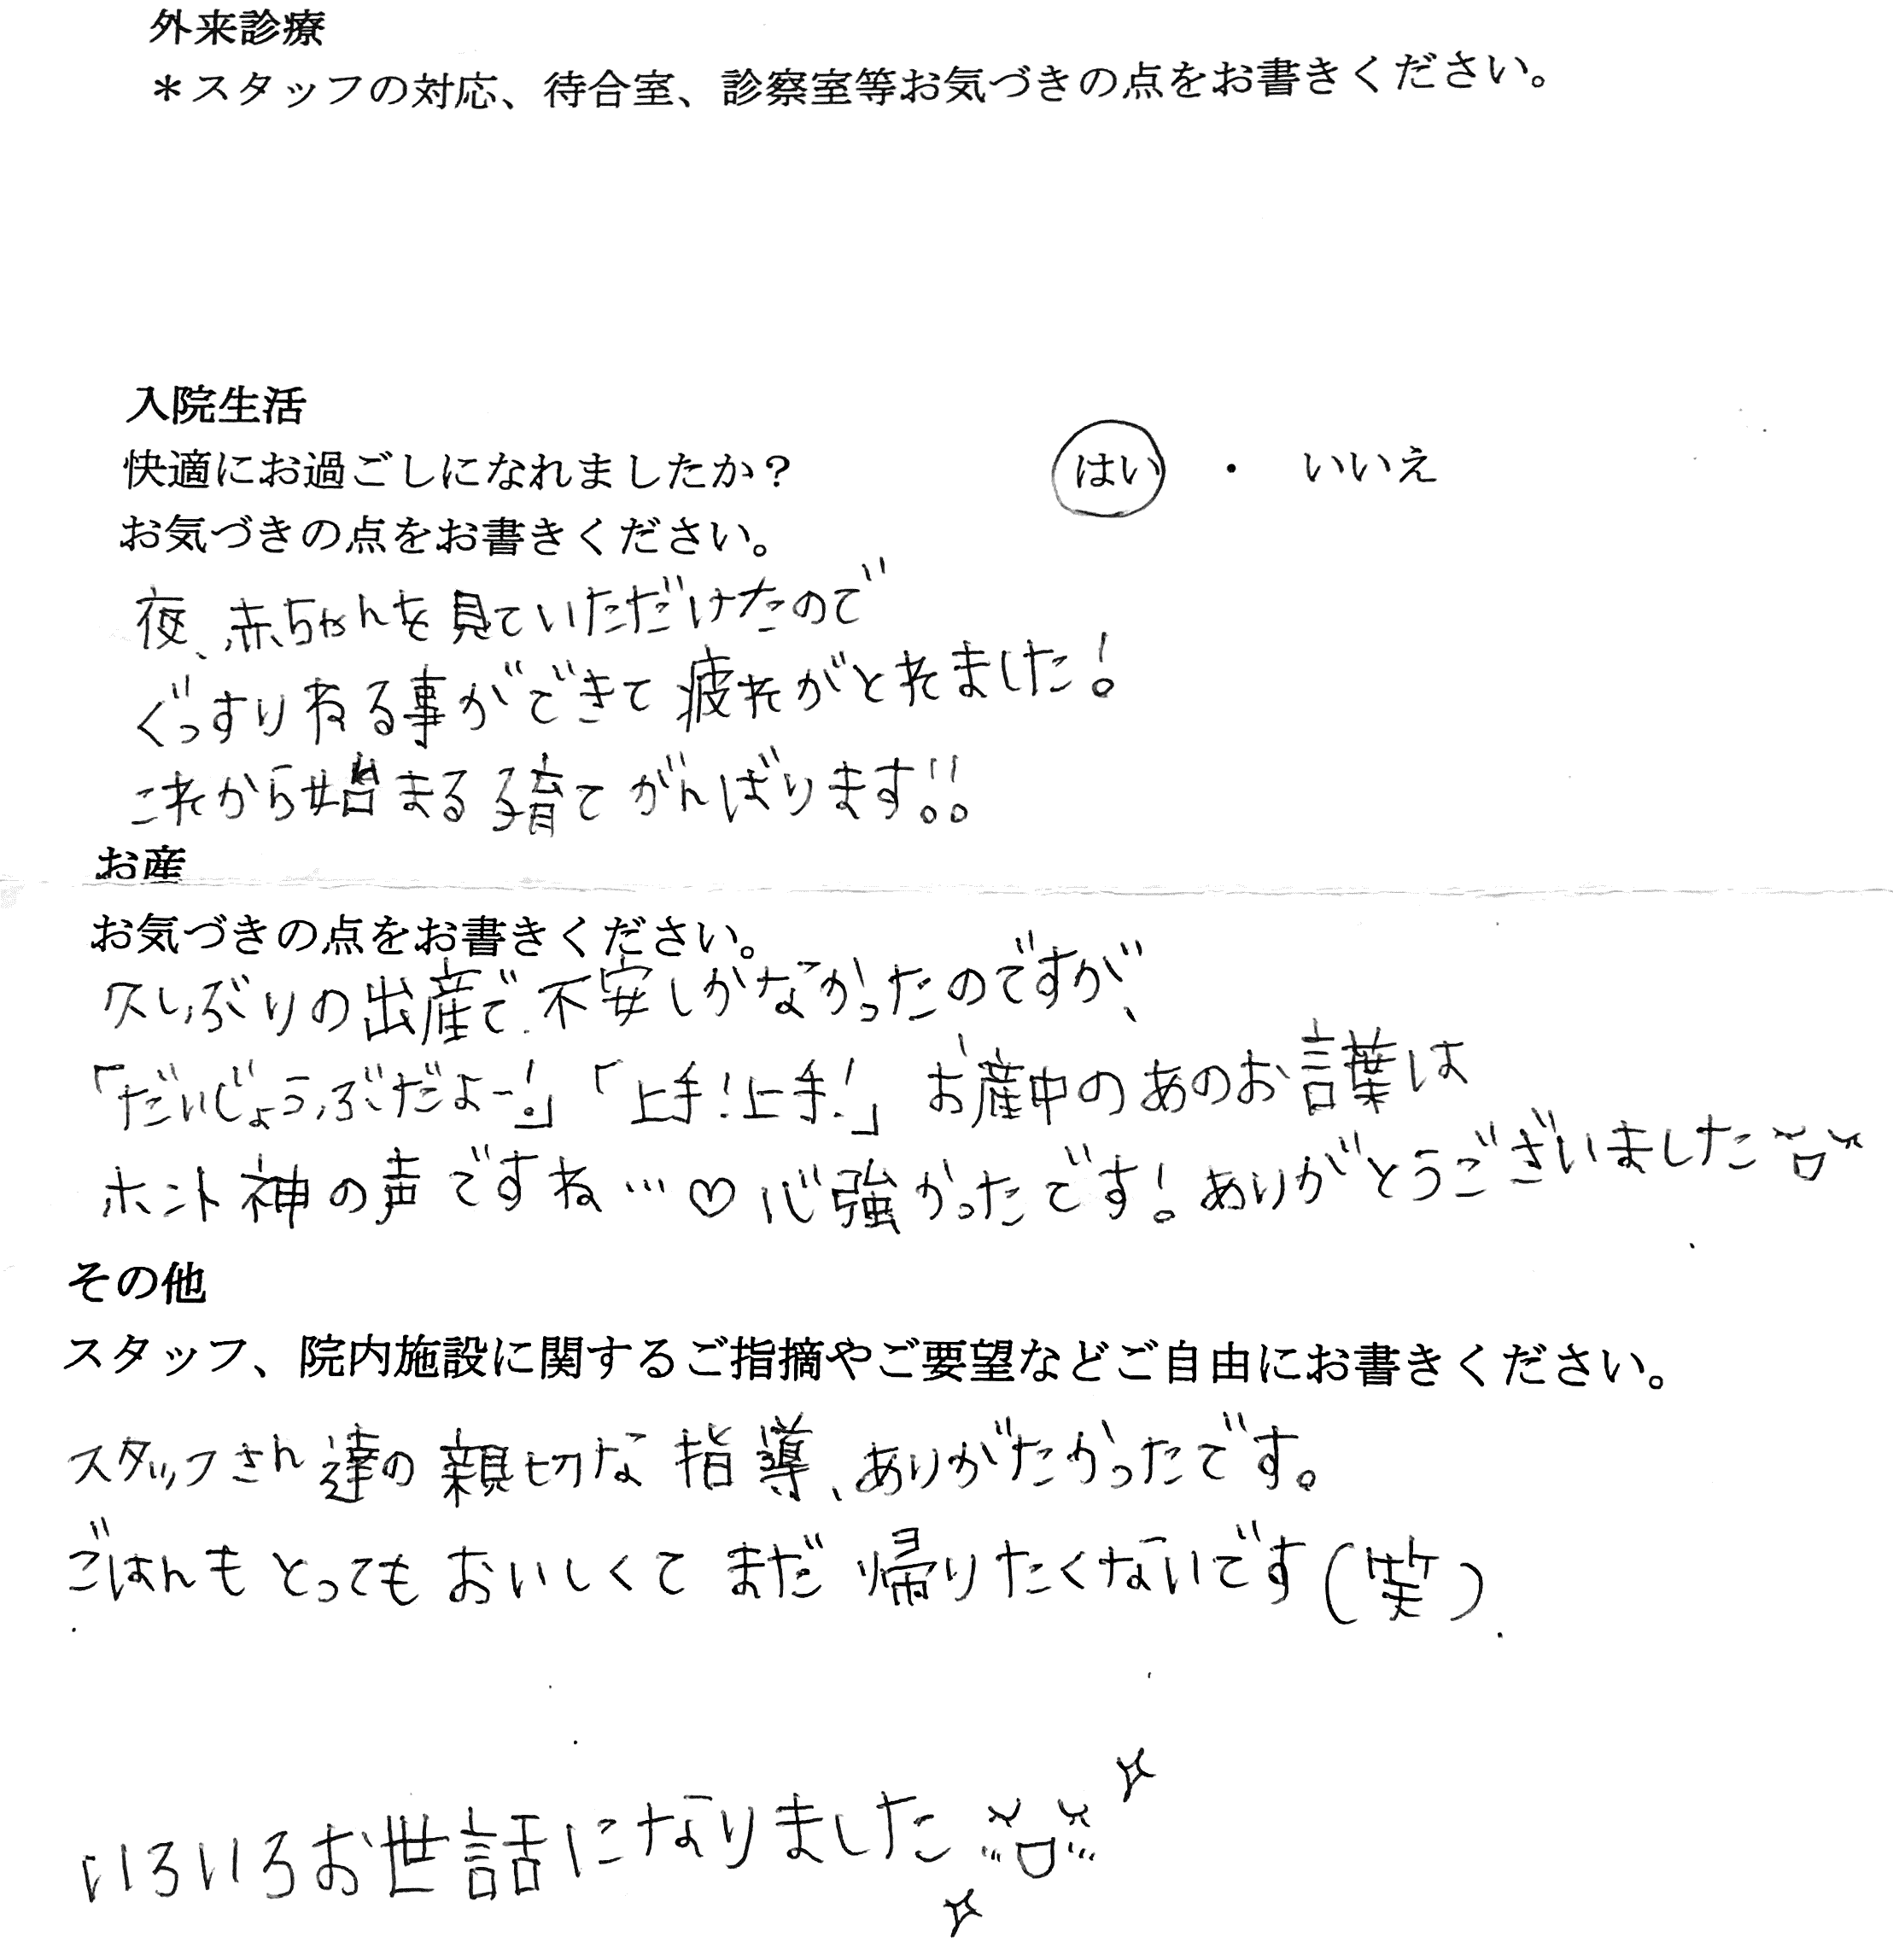 外来診療
＊スタッフの対応、待合室、診察室等お気づきの点をお書きください。
入院生活
快適にお過ごしになれましたか？　はい　・　いいえ
お気づきの点をお書きください。
夜、赤ちゃんを見ていただけたので
ぐっすりねる事ができて疲れがとれました！
これから始まる子育てがんばります!!
お産
お気づきの点をお書きください。
久しぶりの出産で、不安しかなかったのですが、
「だいじょうぶだよー！」「上手！上手！」お産中のあのお言葉は
ホント神の声ですね…♡心強かったです！ありがとうございました
その他
スタッフ、院内施設に関するご指摘やご要望などご自由にお書きください。
スタッフさん達の親切な指導、ありがたかったです。
ごはんもとってもおいしくてまだ帰りたくないです（笑）
いろいろお世話になりました